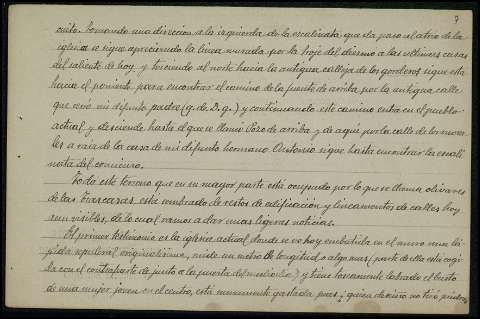 7
cuito. Tomando una direccion a la izquierda de la escalinata que da paso al atrio de la
iglesia se sigue apreciando la linea murada por la hoje del diezmo a las ultimas casas
del saliente de hoy, y torciendo al norte hacia la antigua calleja de los gorderos sigue esta
hacia el poniente para encontrar el camino de la fuente de arriba por la antigua calle
que cerró mi difunto padre (q. d. D. g.) y continuando este camino entra en el pueblo
actual y desciende hasta el que se llama Pozo de arriba y de aqui por la calle de los
les a raiz de la casa de mi difunto hermano Antonio sigue hasta encontrar la escali
nata del comienzo.
Todo este terreno que en su mayor parte está ocupado por lo que se llama olivares
de las Carcasas está sembrado de restos de edificación y lineamentos de calles hoy
aun visibles, de lo cual vamos a dar unas ligeras noticias.
El primer testimonio es la iglesia actual donde se ve hoy embutida en el muro una lá
pida sepulcral originalisima, mide un metro de longitud o algo mas (parte de ella está cogi
da con el contrafuerte de junto a la puerta del mediodia) y tiene toscamente labrado el busto
de una mujer joven en el centro, está sumamente gastada pues, quien la hizo no tuvo